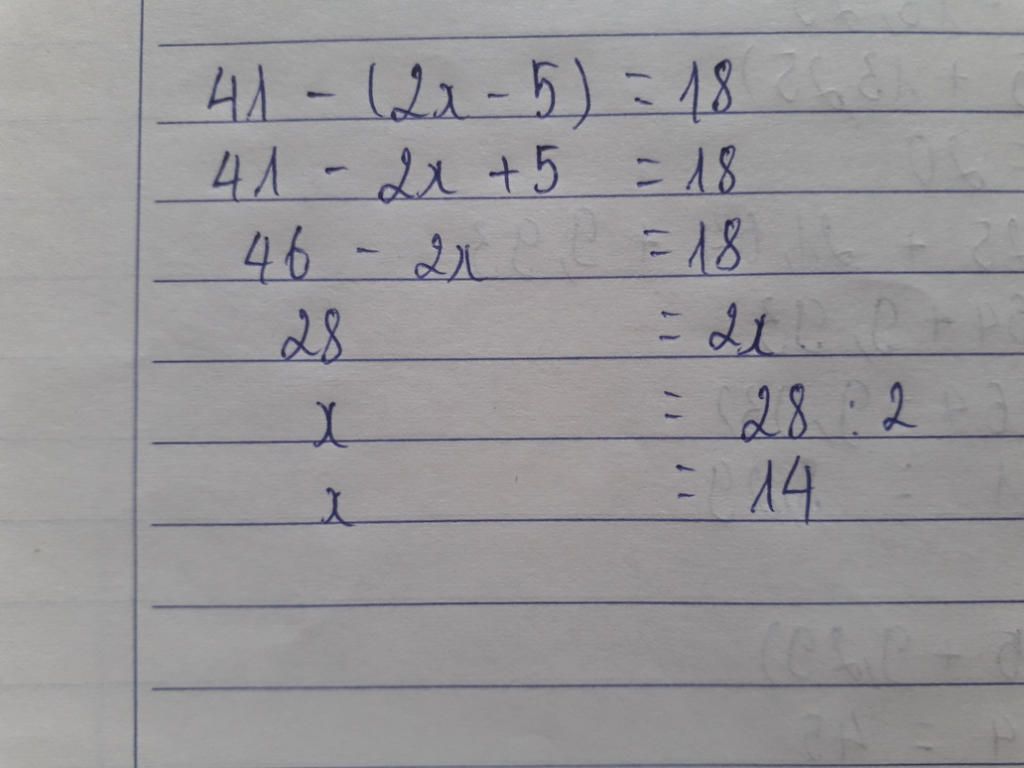 41 - (2x - 5) = 18
41 - 2x + 5 = 18
46 - 2x = 18
28 = 2x
x = 28 : 2
x = 14